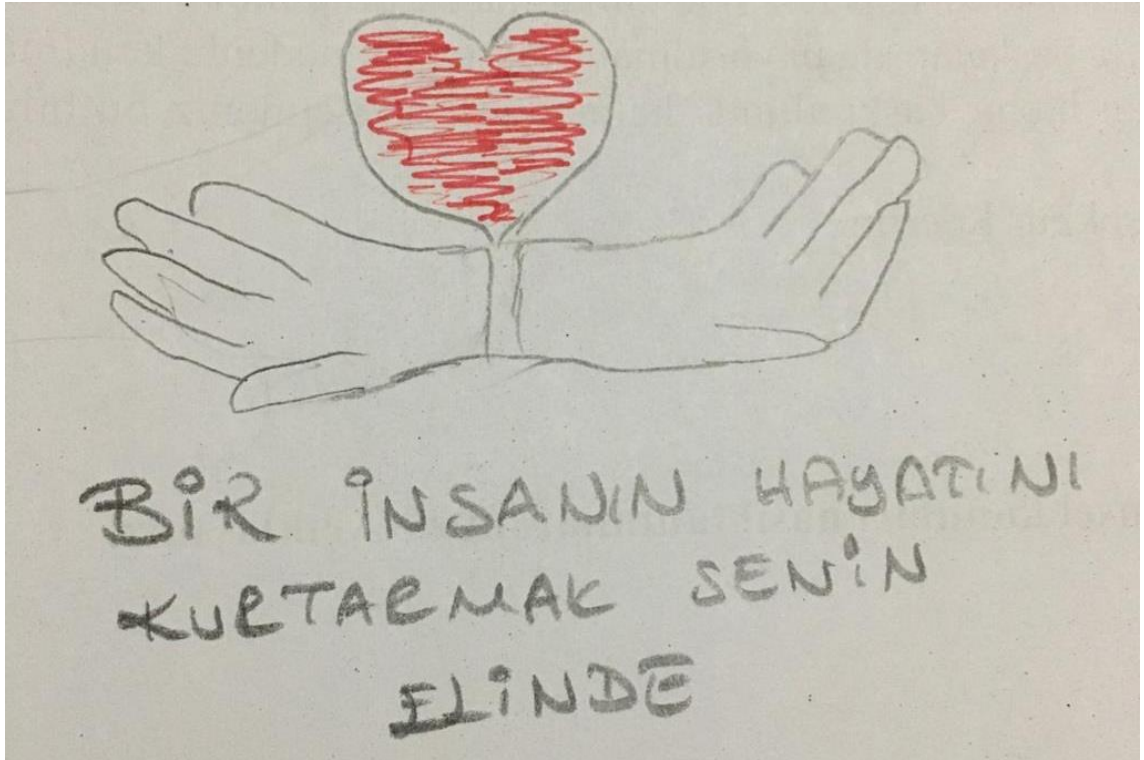 BİR İNSANIN HAYATINI
KURTARMAK SENİN
ELİNDE